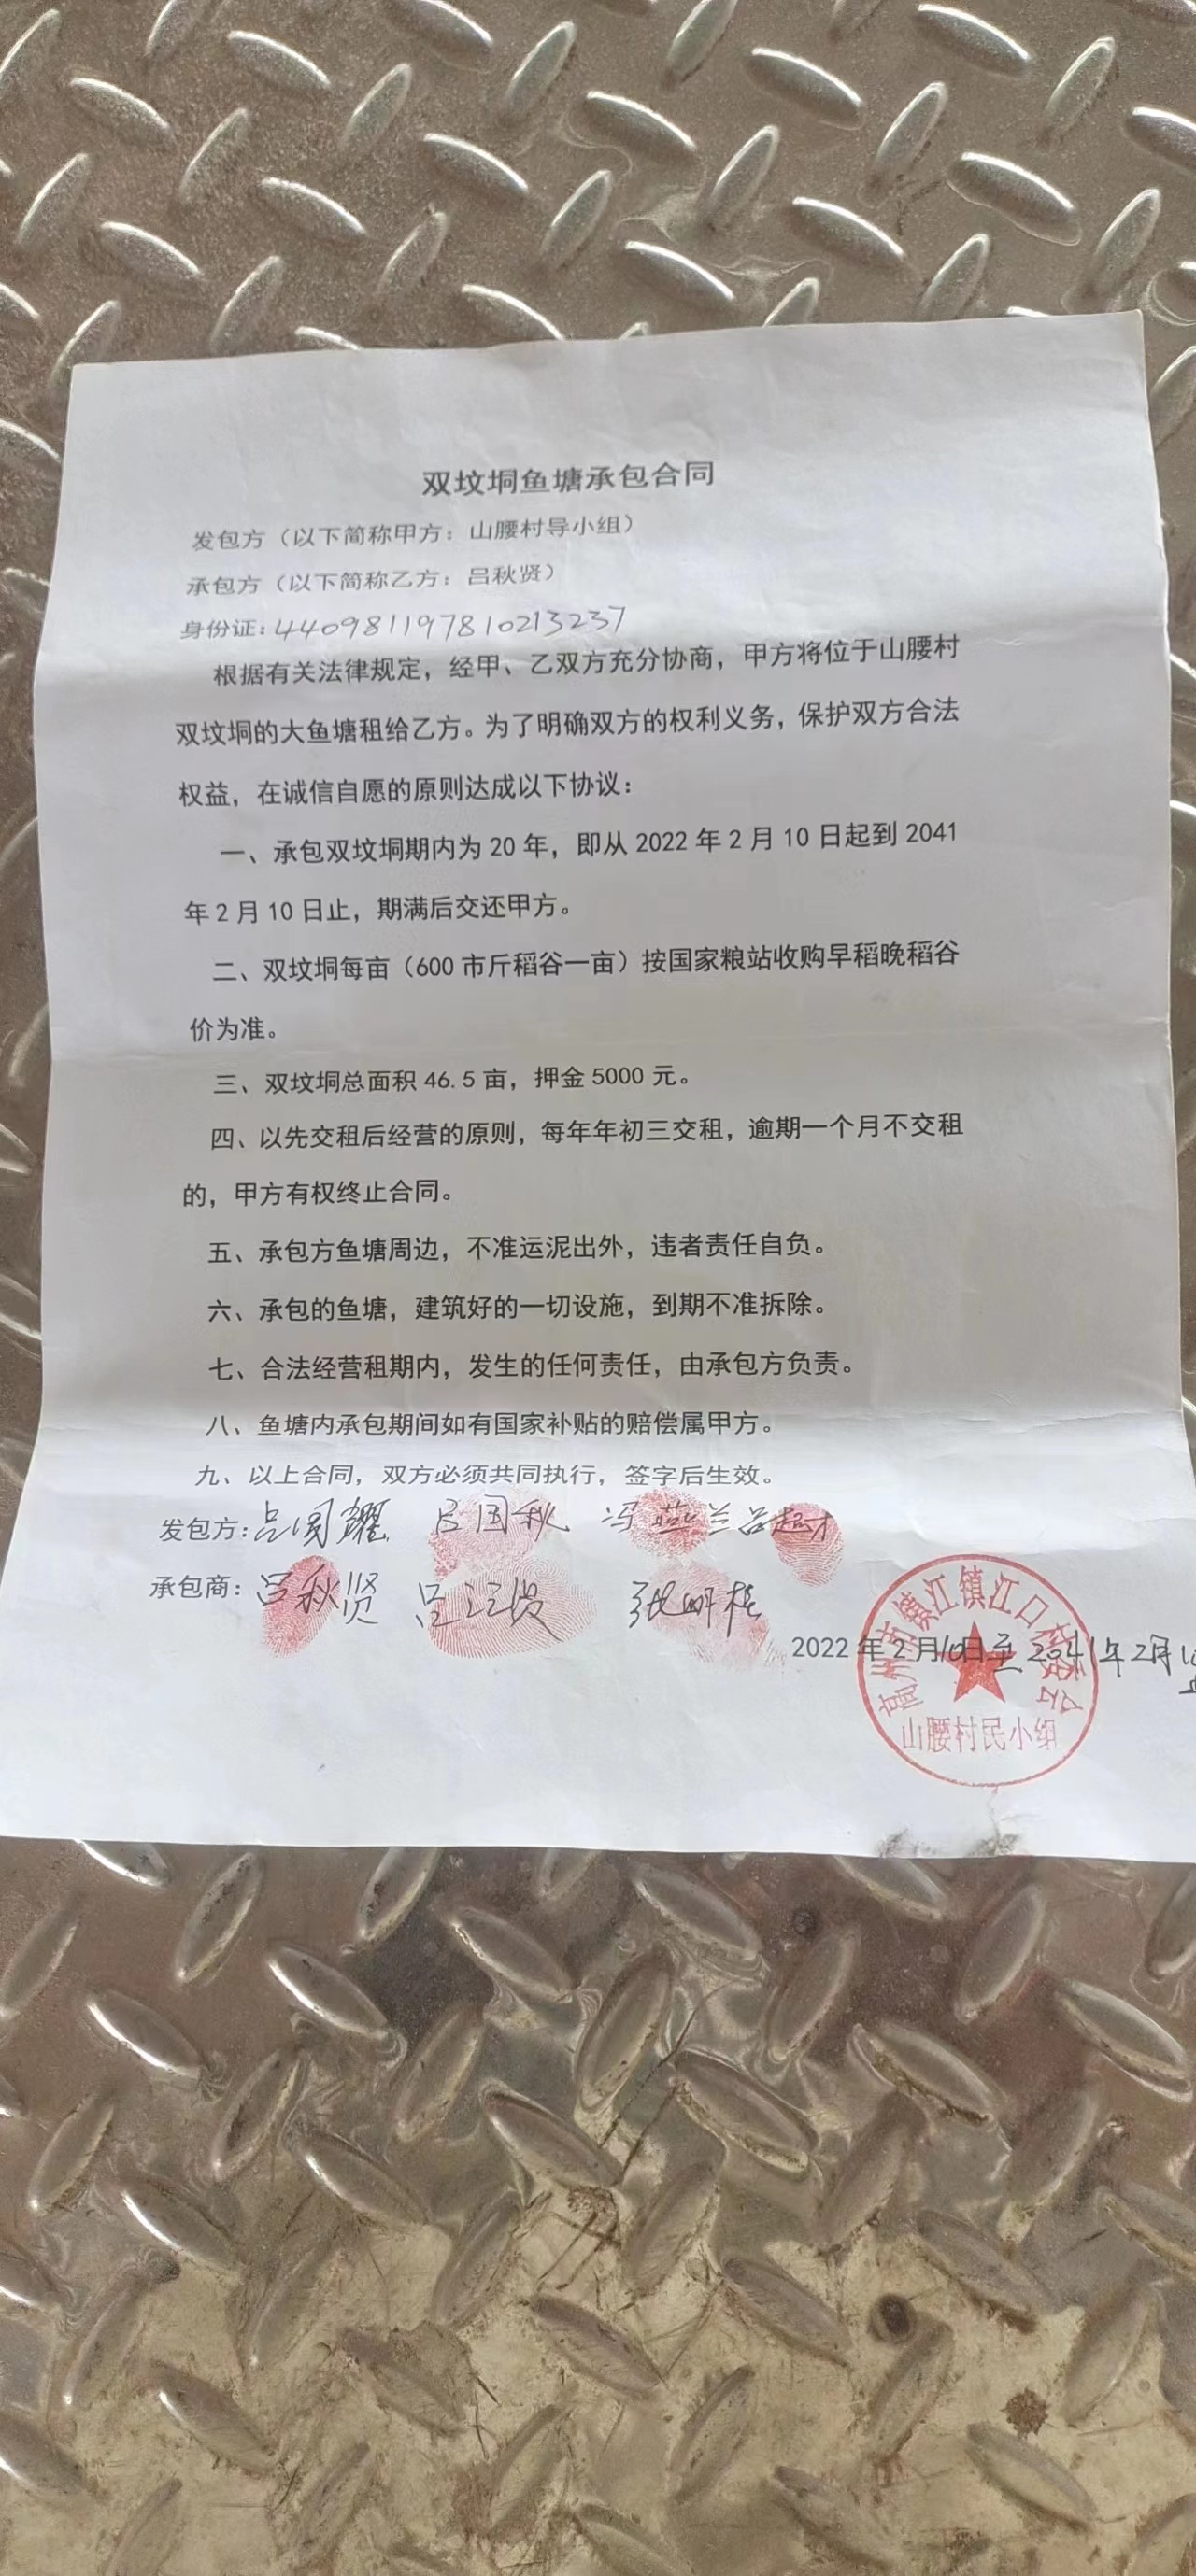 双坟垌鱼塘承包合同
发包方（以下简称甲方：山腰村导小组）
承包方（以下简称乙方：吕秋贤）
身份证：440981197810213237
根据有关法律规定，经甲、乙双方充分协商，甲方将位于山腰村
双坟垌的大鱼塘租给乙方。为了明确双方的权利义务，保护双方合法
权益，在诚信自愿的原则达成以下协议：
一、承包双坟垌期内为 20 年，即从 2022 年 2 月 10 日起到 2041
年 2 月 10 日止，期满后交还甲方。
二、双坟垌每亩（600 市斤稻谷一亩）按国家粮站收购早稻晚稻谷
价为准。
三、双坟垌总面积 46.5 亩，押金 5000 元。
四、以先交租后经营的原则，每年年初三交租，逾期一个月不交租
的，甲方有权终止合同。
五、承包方鱼塘周边，不准运泥出外，违者责任自负。
六、承包的鱼塘，建筑好的一切设施，到期不准拆除。
七、合法经营租期内，发生的任何责任，由承包方负责。
八、鱼塘内承包期间如有国家补贴的赔偿属甲方。
九、以上合同，双方必须共同执行，签字后生效。
发包方：吕国耀 吕国秋 冯燕兰 吕超才
承包商：吕秋贤 吕
2022 年 2 月 10 日至 2041年2月10
高州市镇江镇江口村委会
山腰村民小组